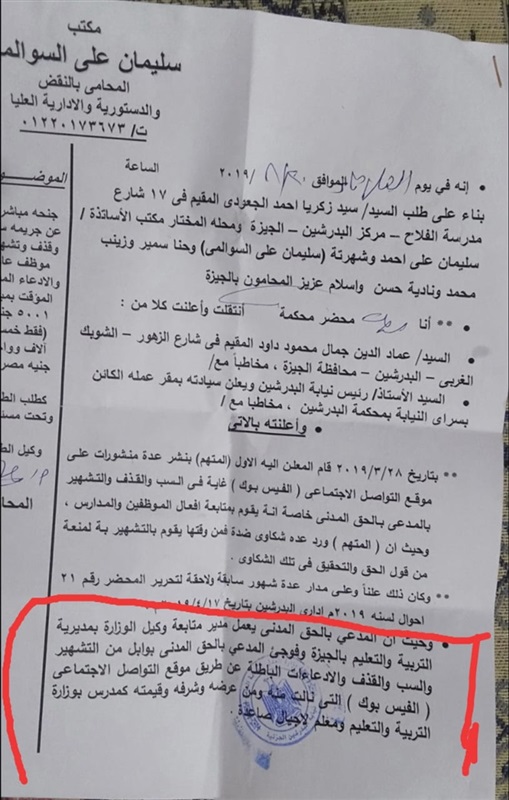 مكتب
سليمان على السوالمى
المحامى بالنقض
والدستورية والادارية العليا
ت/ ٠١٢٢٠١٧٣٦٧٣
إنه في يوم الموافق /٢٠١٩ الساعة
بناء على طلب السيد/ سيد زكريا احمد الجعودى المقيم فى ١٧ شارع
مدرسة الفلاح – مركز البدرشين – الجيزة ومحله المختار مكتب الأساتذة /
سليمان على احمد وشهرتة (سليمان على السوالمى) وحنا سمير وزينب
محمد ونادية حسن واسلام عزيز المحامون بالجيزة
** أنا محضر محكمة انتقلت وأعلنت كلا من :
السيد/ عماد الدين جمال محمود داود المقيم فى شارع الزهور – الشوبك
الغربى – البدرشين – محافظة الجيزة , مخاطباً مع/
السيد الأستاذ/ رئيس نيابة البدرشين ويعلن سيادته بمقر عمله الكائن
بسراى النيابة بمحكمة البدرشين , مخاطباً مع /
وأعلنته بالآتى
** بتاريخ ٢٠١٩/٣/٢٨ قام المعلن اليه الاول (المتهم) بنشر عدة منشورات على
موقع التواصل الاجتماعى ( الفيس بوك ) غاية فى السب والقذف والتشهير
بالمدعى بالحق المدنى خاصة انة يقوم بمتابعة افعال الموظفين والمدارس ,
وحيث ان ( المتهم ) ورد عده شكاوى ضدة فمن وقتها يقوم بالتشهير بة لمنعة
من قول الحق والتحقيق فى تلك الشكاوى .
** وكان ذلك علناً وعلى مدار عدة شهور سابقة ولاحقة لتحرير المحضر رقم ٢١
احوال لسنه ٢٠١٩م ادارى البدرشين بتاريخ
وحيث ان المدعي بالحق المدنى يعمل مدير متابعة وكيل الوزارة بمديرية
التربية والتعليم بالجيزة وفوجئ المدعي بالحق المدنى بوابل من التشهير
والسب والقذف والادعاءات الباطلة عن طريق موقع التواصل الاجتماعى
( الفيس بوك ) التى نالت منه ومن عرضه وشرفه وقيمته كمدرس بوزارة
التربية والتعليم ومعلم لاجيال صاعدة .
الموضـو
جنحه مباشر
عن جريمه س
وقذف وتشهي
موظف عا
والادعاء الم
المؤقت بم
٥٠٠١ جن
(فقط خمس
آلاف وواح
جنيه مصر
كطلب الط
وتحت مسئ
وكيل الط
المحا